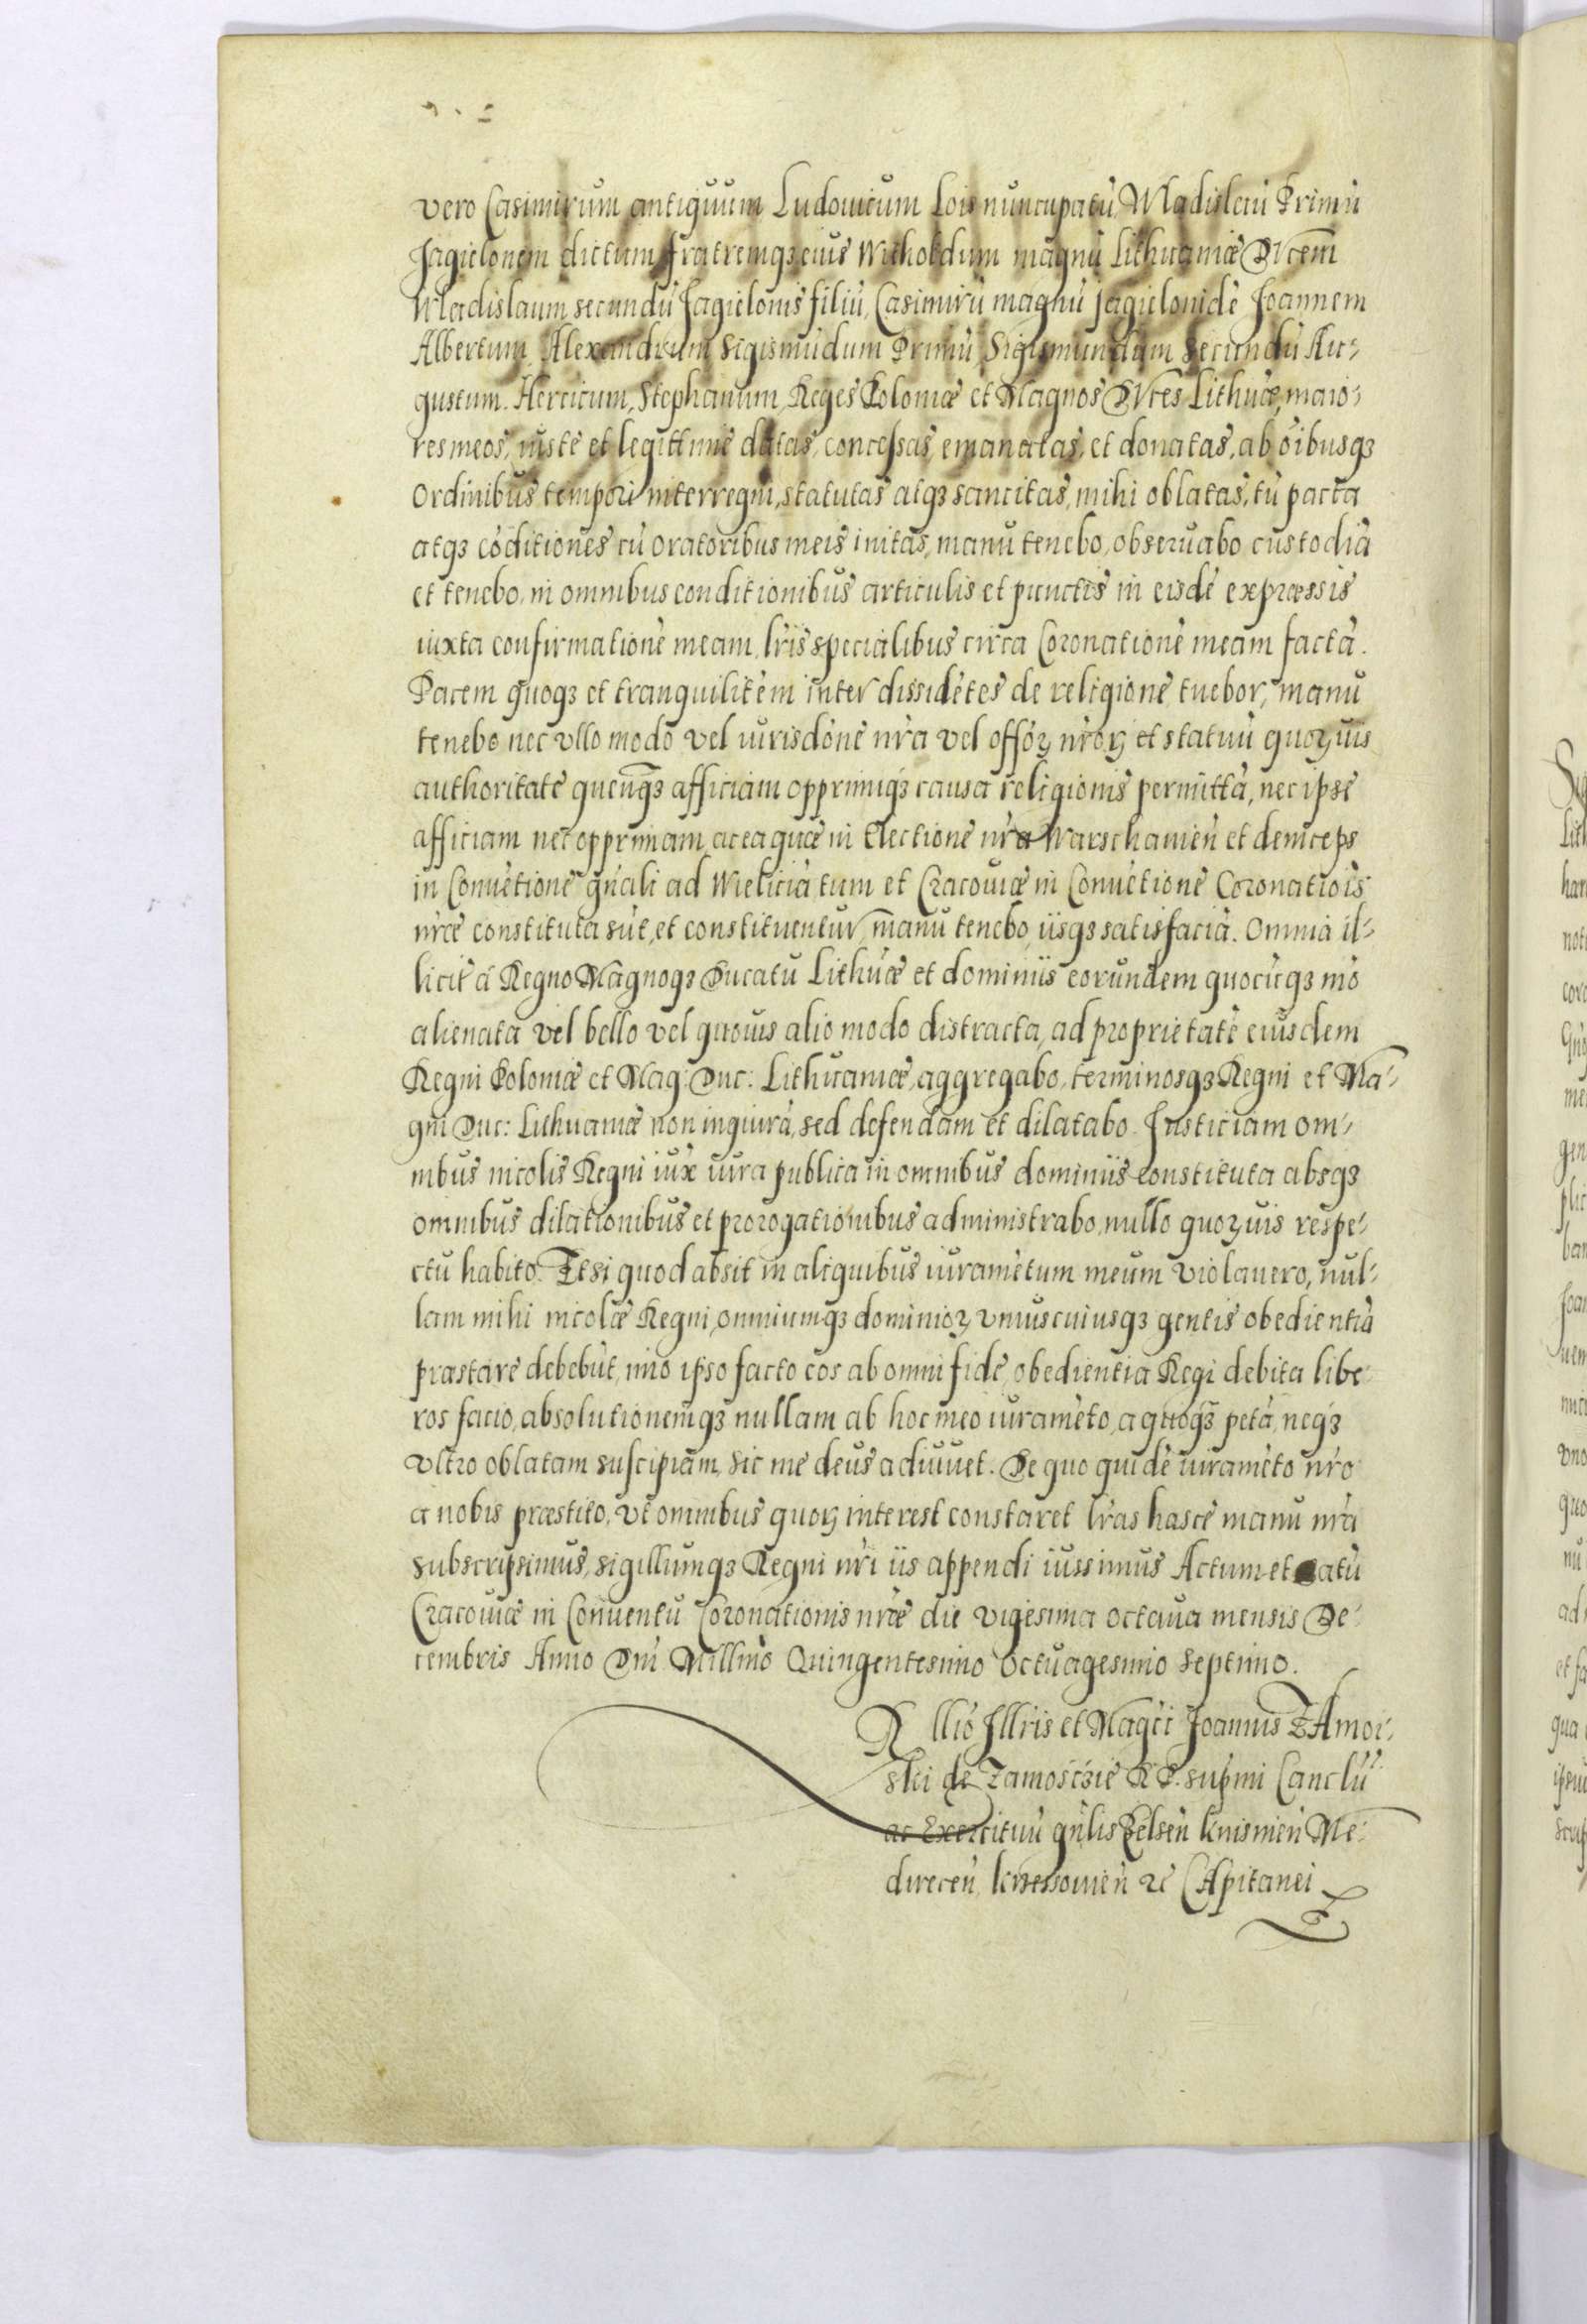 vero Casimirum antiquum Ludouicum Lois nuncupatũ, Wladislaũ Primũ
Jagielonem dictum fratremqꝫ eius Witholdum magnũ Lithuaniæ Ducem
Wladislaum secundũ Jagielonis filiũ, Casimirũ magnũ Jagielonidẽ Joannem
Albertum, Alexandrum Sigismũdum Primũ, Sigismundum Secundũ Au-
gustum. Hericum, Stephanum, Reges Poloniæ et Magnos Duces Lithuæ, maio-
res meos, iuste et legittime datas, concessas, emanatas, et donatas, ab oĩbusqꝫ
Ordinibus tempori interregni, statutas atqꝫ sancitas, mihi oblatas, tũ pacta
atqꝫ cõditiones cũ oratoribus meis initas, manu tenebo, obseruabo custodiã
et tenebo, in omnibus conditionibus articulis et punctis in eisdẽ expræssis
iuxta confirmationẽ meam, lr̃is specialibus circa Coronationẽ meam factã.
Pacem quoqꝫ et tranquilitẽm inter dissidẽtes de religione tuebor, manu
tenebo nec vllo modo vel iurisdõne nr̃a vel offoꝝ nr̃oꝝ et statuũ quoꝝuis
authoritate quenqꝫ affician opprimiqꝫ causa religionis permittã, nec ipse
afficiam nec opprimam, ac ea quæ in Electione nr̃a Warschauien̄ et deinceps
in Conuẽtione gn̄ali ad Wieliciã, tum et Cracouiæ in Conuẽtione Coronatiois
nr̃æ constituta sũt, et constituentur, manu tenebo, iisqꝫ satisfaciã. Omnia il-
licit̃ á Regno Magnoqꝫ Ducatu Lithuæ et dominiis eorundem quocũqꝫ mõ
alienata vel bello vel quouis alio modo distracta, ad proprietatẽ eiusdem
Regni Poloniæ et Mag: Duc: Lithuaniæ, aggregabo, terminosqꝫ Regni et Ma-
gni Duc: Lithuaniæ non inquirã, sed defendam et dilatabo. Justiciam om-
nibus incolis Regni iux̃ iura publica in omnibus dominiis constituta absqꝫ
omnibus dilationibus et prorogationibus administrabo, nullo quoꝝuis respe-
ctu habito. Et si quod absit in aliquibus iuramẽtum meum violauero, nul-
lam mihi incolæ Regni, omniumqꝫ dominioꝝ vniuscuiusqꝫ gentis obedientiã
prastare debebũt, imo ipso facto eos ab omni fide, obedientia Regi debita libe-
ros facio, absolutionemqꝫ nullam ab hoc meo iuramẽto, a quoqꝫ petã, neqꝫ
vltro oblatam suscipiam, sic me deus adiuuet. De quo quidẽ iuramẽto nr̃o
a nobis præstito, vt omnibus quoꝝ interest constaret lr̃as hasce manu nr̃a
subscripsimus, sigillumqꝫ Regni nr̃i iis appendi iussimus Actum et Datũ
Cracouiæ in Conuentu Coronationis nr̃æ die vigesima octaua mensis De-
cembris Anno Dn̄i Millmõ Quingentesimo octuagesimo septimo.
Rllio Jllris et Magci Joannis ZAmoi-
skĩ de Zamoscie R P. supmi Canclũ
ac Exercituũ gn̄lis Belsen̄ knisinien̄ Me-
direcen̄ kressouien̄ ꝛc̃ CApitanei